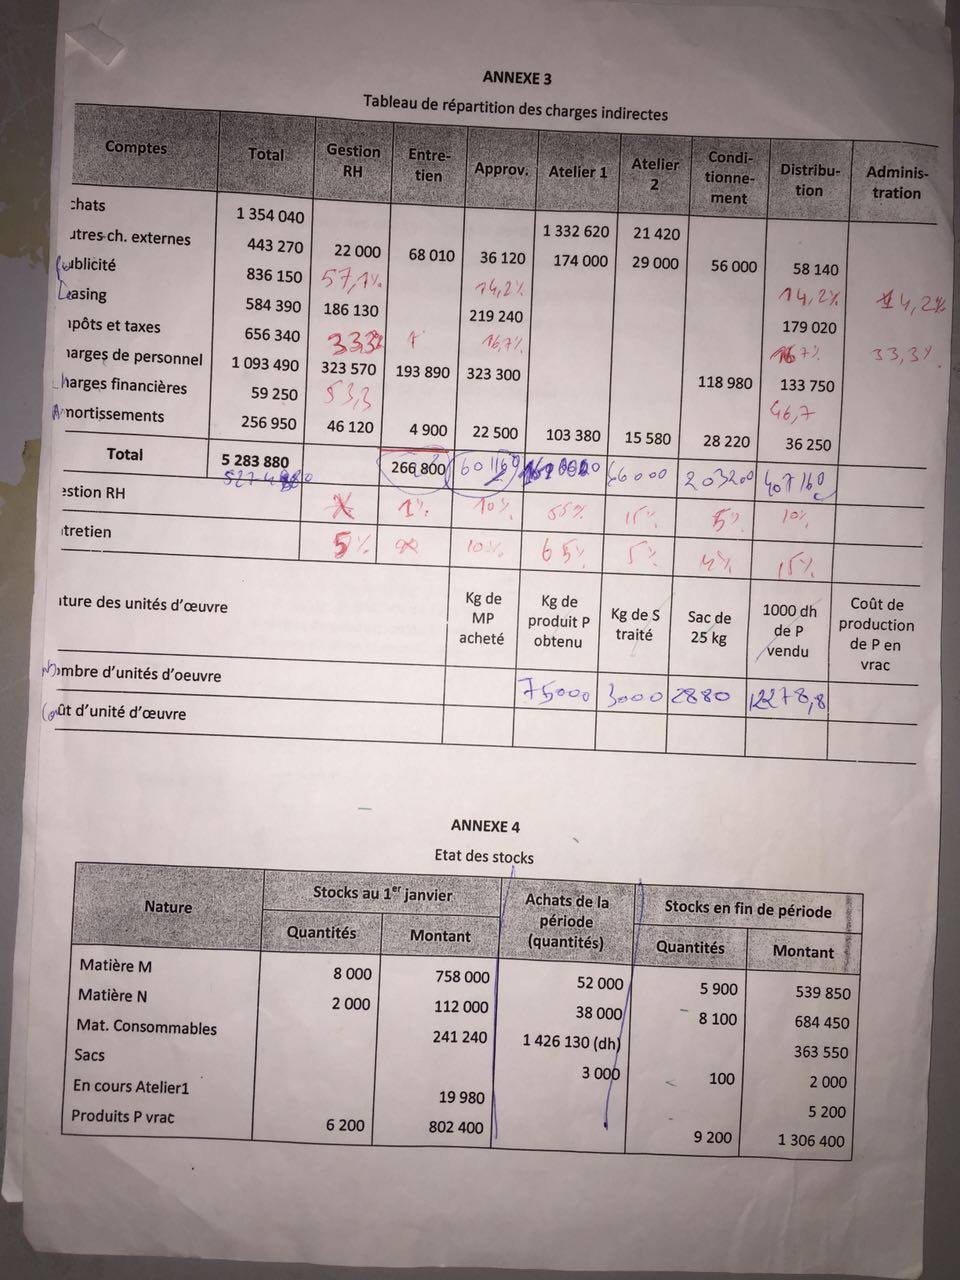 ANNEXE 3
Tableau de répartition des charges indirectes
Comptes Total Gestion RH Entre-tien Approv. Atelier 1 Atelier 2 Condi-tionne-ment Distribu-tion Adminis-tration
chats 1 354 040 1 332 620 21 420
utres ch. externes 443 270 22 000 68 010 36 120 174 000 29 000 56 000 58 140
ublicité 836 150 57,1% 14,2% 14,2% 14,2%
Leasing 584 390 186 130 219 240 179 020
pôts et taxes 656 340 33,3% 16,7% 16,7% 33,3%
arges de personnel 1 093 490 323 570 193 890 323 300 118 980 133 750
harges financières 59 250 53,3 46,7
Amortissements 256 950 46 120 4 900 22 500 103 380 15 580 28 220 36 250
Total 5 283 880 266 800 601160 66000 203200 407160
estion RH 1% 10% 55% 15% 5% 10%
tretien 5% 10% 65% 5% 15%
ture des unités d'œuvre Kg de MP acheté Kg de produit P obtenu Kg de S traité Sac de 25 kg 1000 dh de P vendu Coût de production de P en vrac
Nombre d'unités d'oeuvre 75000 3000 2880 12278,8
Coût d'unité d'œuvre
ANNEXE 4
Etat des stocks
Nature Stocks au 1er janvier Achats de la période (quantités) Stocks en fin de période
Quantités Montant Quantités Montant
Matière M 8 000 758 000 52 000 5 900 539 850
Matière N 2 000 112 000 38 000 8 100 684 450
Mat. Consommables 241 240 1 426 130 (dh) 363 550
Sacs 3 000 100 2 000
En cours Atelier1 19 980 5 200
Produits P vrac 6 200 802 400 9 200 1 306 400